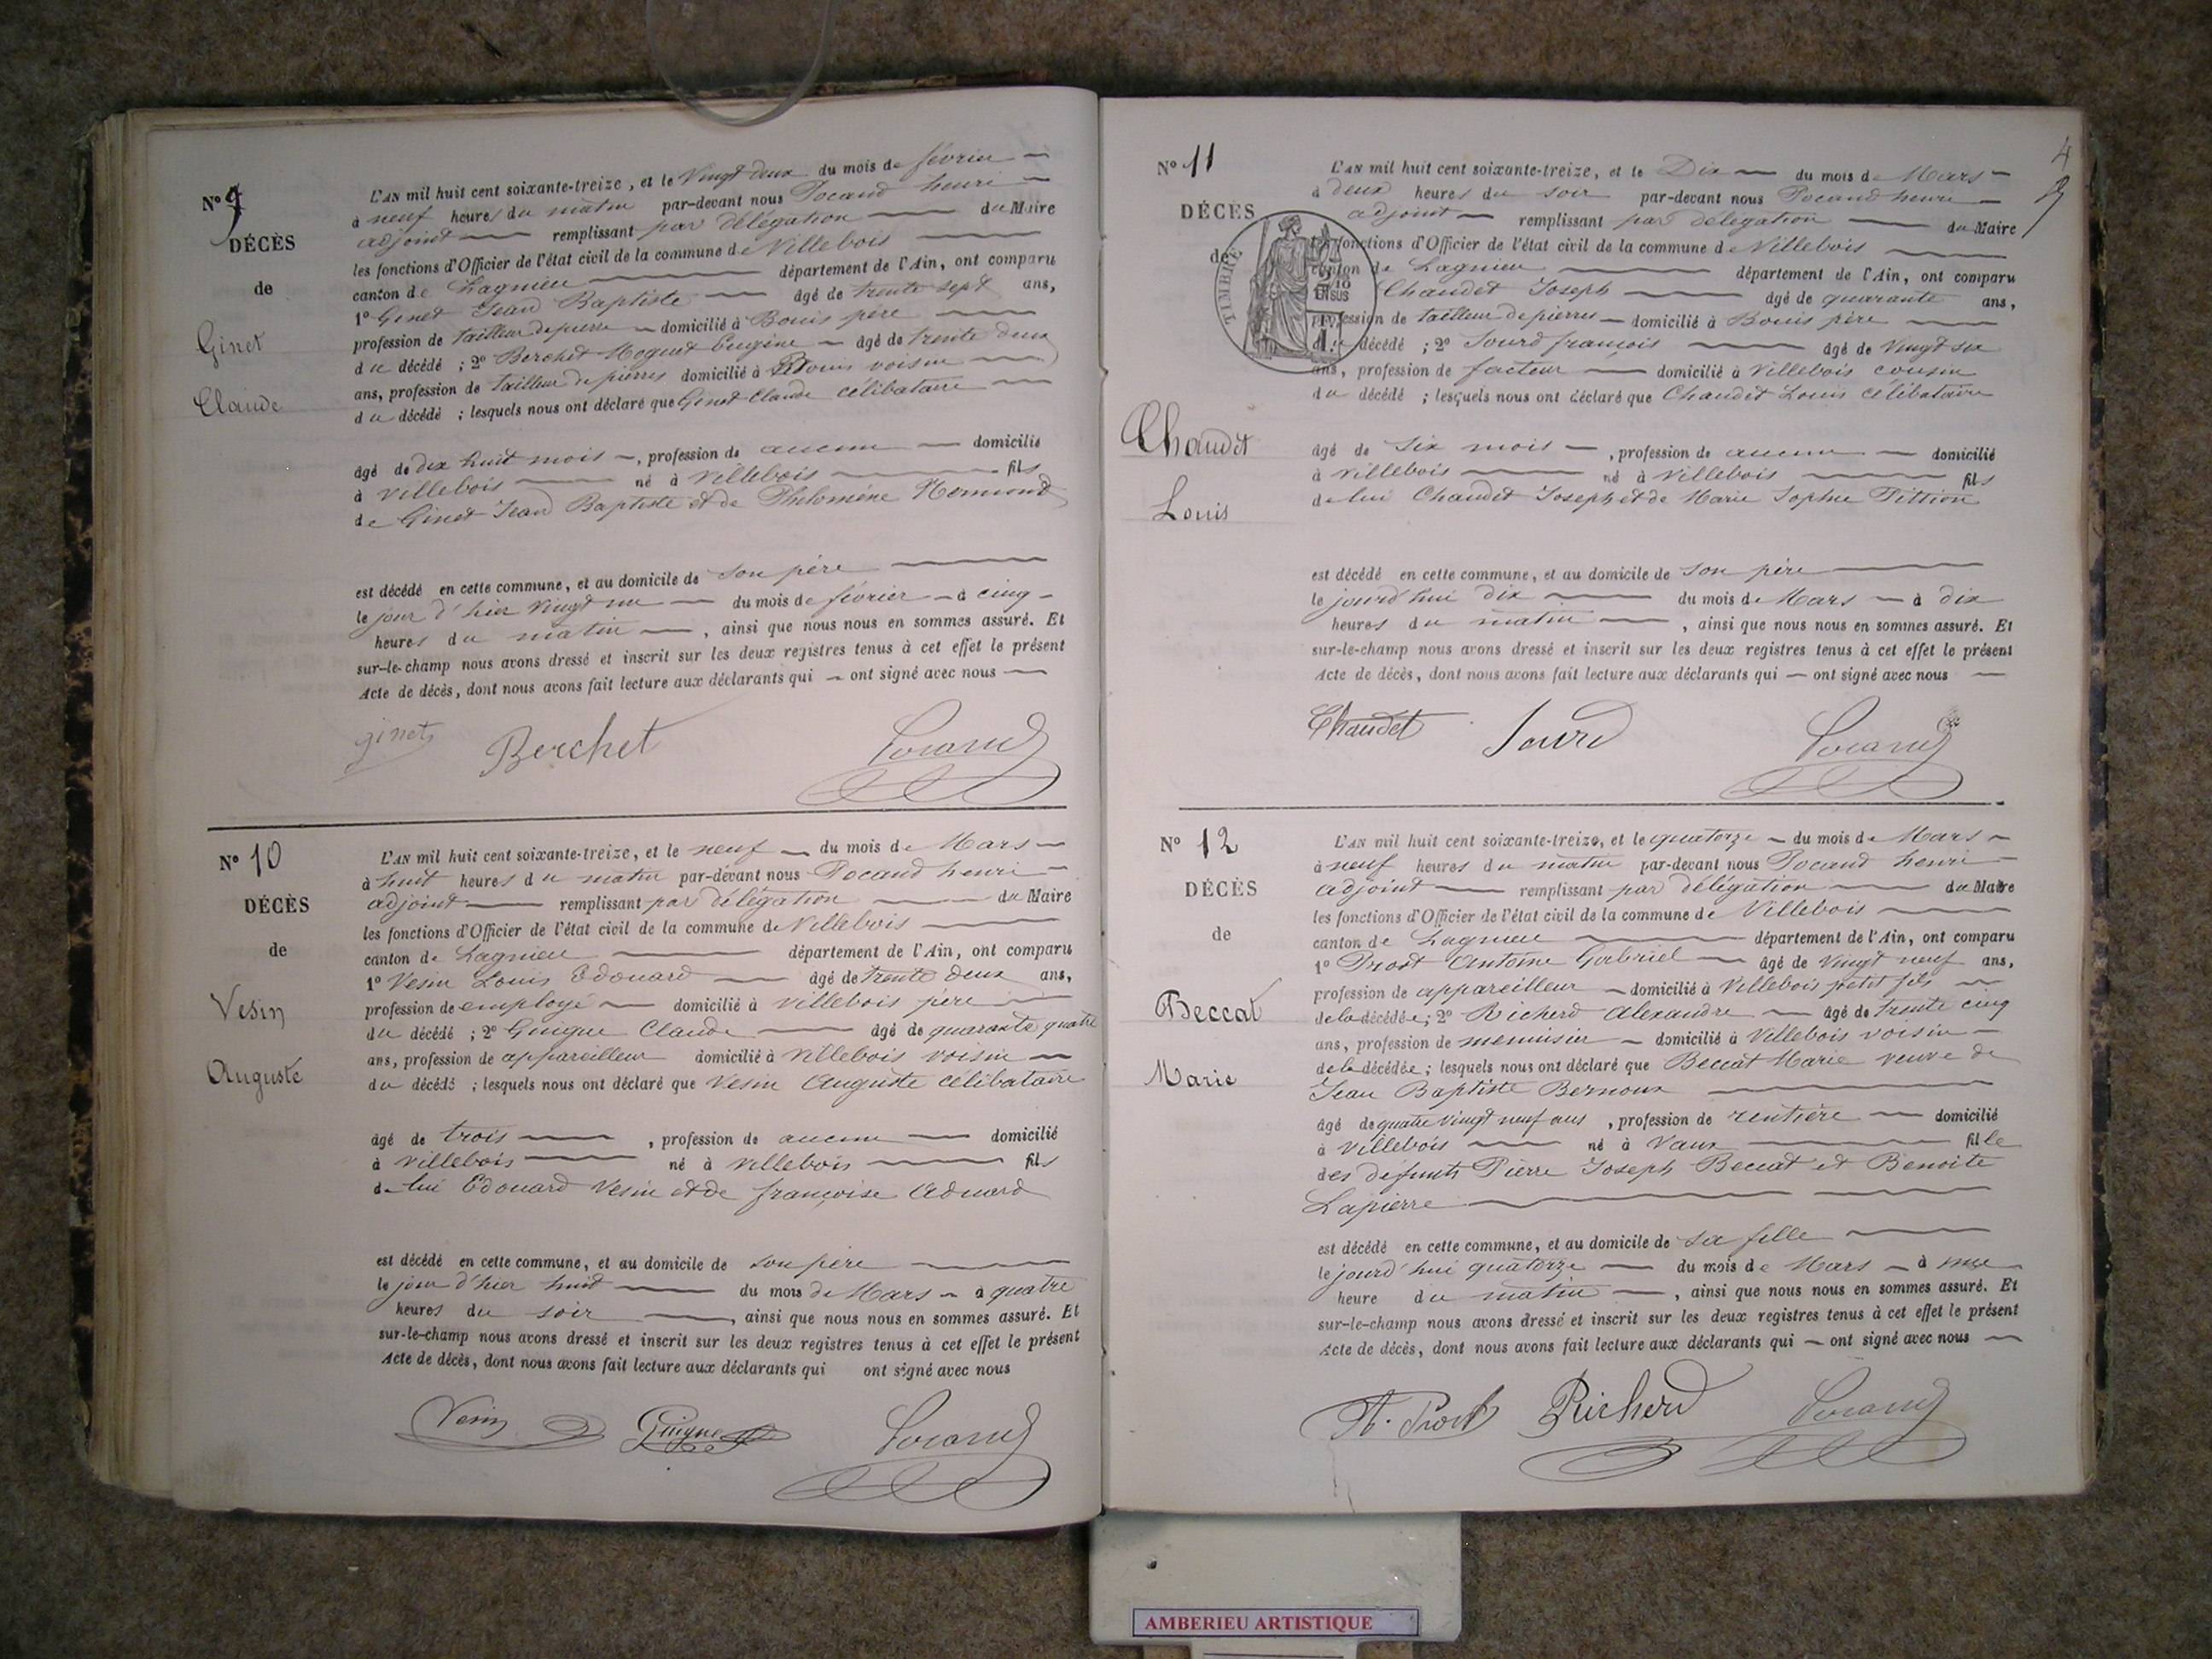 N° 9
DÉCÈS
de
Ginet
Claude
L'AN mil huit cent soixante-treize, et le Vingt deux du mois de février
à neuf heures du matin par-devant nous Pocand henri
adjoint remplissant par délégation du Maire
les fonctions d'Officier de l'état civil de la commune de Villebois
canton de Lagnieu département de l'Ain, ont comparu
1° Ginet Jean Baptiste âgé de trente sept ans,
profession de tailleur de pierre domicilié à Bouis père
du décédé ; 2° Berchet Moguet Eugène âgé de trente deux
ans, profession de tailleur de pierres domicilié à Bouis voisin
du décédé ; lesquels nous ont déclaré que Ginet Claude célibataire
âgé de dix huit mois, profession de aucune domicilié
à Villebois né à Villebois fils
de Ginet Jean Baptiste et de Philomène
est décédé en cette commune, et au domicile de son père
le jour d'hier vingt un du mois de février à cinq
heures du matin, ainsi que nous nous en sommes assuré. Et
sur-le-champ nous avons dressé et inscrit sur les deux registres tenus à cet effet le présent
Acte de décès, dont nous avons fait lecture aux déclarants qui ont signé avec nous
ginet Berchet Pocand
N° 10
DÉCÈS
de
Vesin
Auguste
L'AN mil huit cent soixante-treize, et le neuf du mois de Mars
à huit heures du matin par-devant nous Pocand henri
adjoint remplissant par délégation du Maire
les fonctions d'Officier de l'état civil de la commune de Villebois
canton de Lagnieu département de l'Ain, ont comparu
1° Vesin Louis Edouard âgé de trente deux ans,
profession de employé domicilié à Villebois père
du décédé ; 2° Guigue Claude âgé de quarante quatre
ans, profession de appareilleur domicilié à Villebois voisin
du décédé ; lesquels nous ont déclaré que Vesin Auguste célibataire
âgé de trois, profession de aucune domicilié
à Villebois né à Villebois fils
de lui Edouard Vesin et de françoise Aduard
est décédé en cette commune, et au domicile de son père
le jour d'hier huit du mois de Mars à quatre
heures du soir, ainsi que nous nous en sommes assuré. Et
sur-le-champ nous avons dressé et inscrit sur les deux registres tenus à cet effet le présent
Acte de décès, dont nous avons fait lecture aux déclarants qui ont signé avec nous
Vesin Guigue Pocand
4
N° 11
DÉCÈS
de
TIMBRE
2/10
EN SUS
Chaudet
Louis
L'AN mil huit cent soixante-treize, et le Dix du mois de Mars
à deux heures du soir par-devant nous Pocand henri
adjoint remplissant par délégation du Maire
les fonctions d'Officier de l'état civil de la commune de Villebois
canton de Lagnieu département de l'Ain, ont comparu
Chaudet Joseph âgé de quarante ans,
profession de tailleur de pierres domicilié à Bouis père
du décédé ; 2° Jourd françois âgé de vingt six
ans, profession de facteur domicilié à Villebois cousin
du décédé ; lesquels nous ont déclaré que Chaudet Louis célibataire
âgé de Six mois, profession de aucune domicilié
à Villebois né à Villebois fils
de lui Chaudet Joseph et de Marie Sophie Tittion
est décédé en cette commune, et au domicile de son père
le jourd'hui dix du mois de Mars à dix
heures du matin, ainsi que nous nous en sommes assuré. Et
sur-le-champ nous avons dressé et inscrit sur les deux registres tenus à cet effet le présent
Acte de décès, dont nous avons fait lecture aux déclarants qui ont signé avec nous
Chaudet Jourd Pocand
N° 12
DÉCÈS
de
Beccat
Marie
L'AN mil huit cent soixante-treize, et le quatorze du mois de Mars
à neuf heures du matin par-devant nous Pocand henri
adjoint remplissant par délégation du Maire
les fonctions d'Officier de l'état civil de la commune de Villebois
canton de Lagnieu département de l'Ain, ont comparu
1° Prost Antoine Gabriel âgé de vingt neuf ans,
profession de appareilleur domicilié à Villebois petit fils
de la décédée ; 2° Richerd Alexandre âgé de trente cinq
ans, profession de menuisier domicilié à Villebois voisin
de la décédée ; lesquels nous ont déclaré que Beccat Marie veuve de
Jean Baptiste Bernoux
âgé de quatre vingt neuf ans, profession de rentière domicilié
à Villebois né à Vaux fille
des défunts Pierre Joseph Beccat et Benoite
Lapierre
est décédé en cette commune, et au domicile de sa fille
le jourd'hui quatorze du mois de Mars à une
heure du matin, ainsi que nous nous en sommes assuré. Et
sur-le-champ nous avons dressé et inscrit sur les deux registres tenus à cet effet le présent
Acte de décès, dont nous avons fait lecture aux déclarants qui ont signé avec nous
A. Prost Richerd Pocand
AMBERIEU ARTISTIQUE